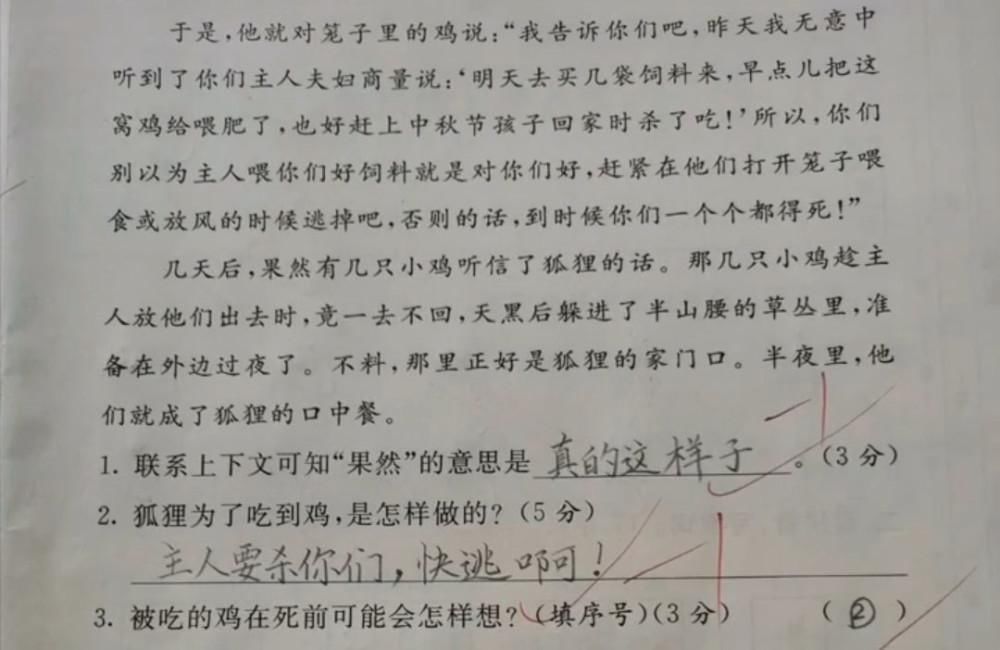 于是，他就对笼子里的鸡说：“我告诉你们吧，昨天我无意中
听到了你们主人夫妇商量说：‘明天去买几袋饲料来，早点儿把这
窝鸡给喂肥了，也好赶上中秋节孩子回家时杀了吃！’所以，你们
别以为主人喂你们好饲料就是对你们好，赶紧在他们打开笼子喂
食或放风的时候逃掉吧，否则的话，到时候你们一个个都得死！”
几天后，果然有几只小鸡听信了狐狸的话。那几只小鸡趁主
人放他们出去时，竟一去不回，天黑后躲进了半山腰的草丛里，准
备在外边过夜了。不料，那里正好是狐狸的家门口。半夜里，他
们就成了狐狸的口中餐。
1. 联系上下文可知“果然”的意思是 真的这样子 。（3分） -1
2. 狐狸为了吃到鸡，是怎样做的？（5分）
主人要杀你们，快逃啊！ -1
3. 被吃的鸡在死前可能会怎样想？（填序号）（3分） （ ② ）